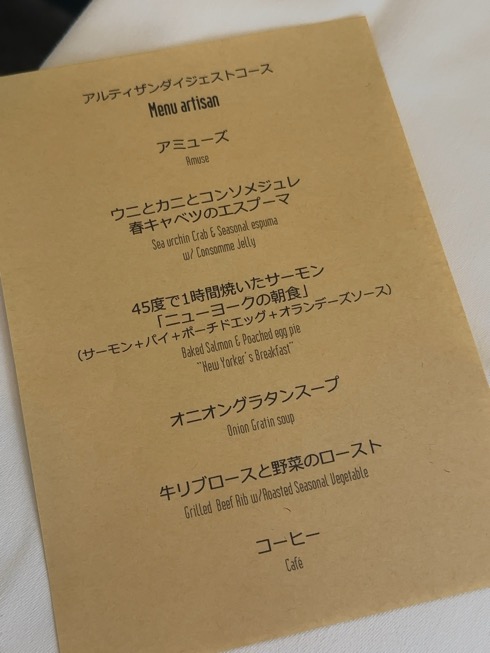 アルティザンダイジェストコース
Menu artisan
アミューズ
Amuse
ウニとカニとコンソメジュレ
春キャベツのエスプーマ
Sea urchin Crab & Seasonal espuma
w/ Consomme Jelly
45度で1時間焼いたサーモン
「ニューヨークの朝食」
(サーモン+パイ+ポーチドエッグ+オランデーズソース)
Baked Salmon & Poached egg pie
"New Yorker's Breakfast"
オニオングラタンスープ
Onion Gratin soup
牛リブロースと野菜のロースト
Grilled Beef Rib w/Roasted Seasonal Vegetable
コーヒー
Café